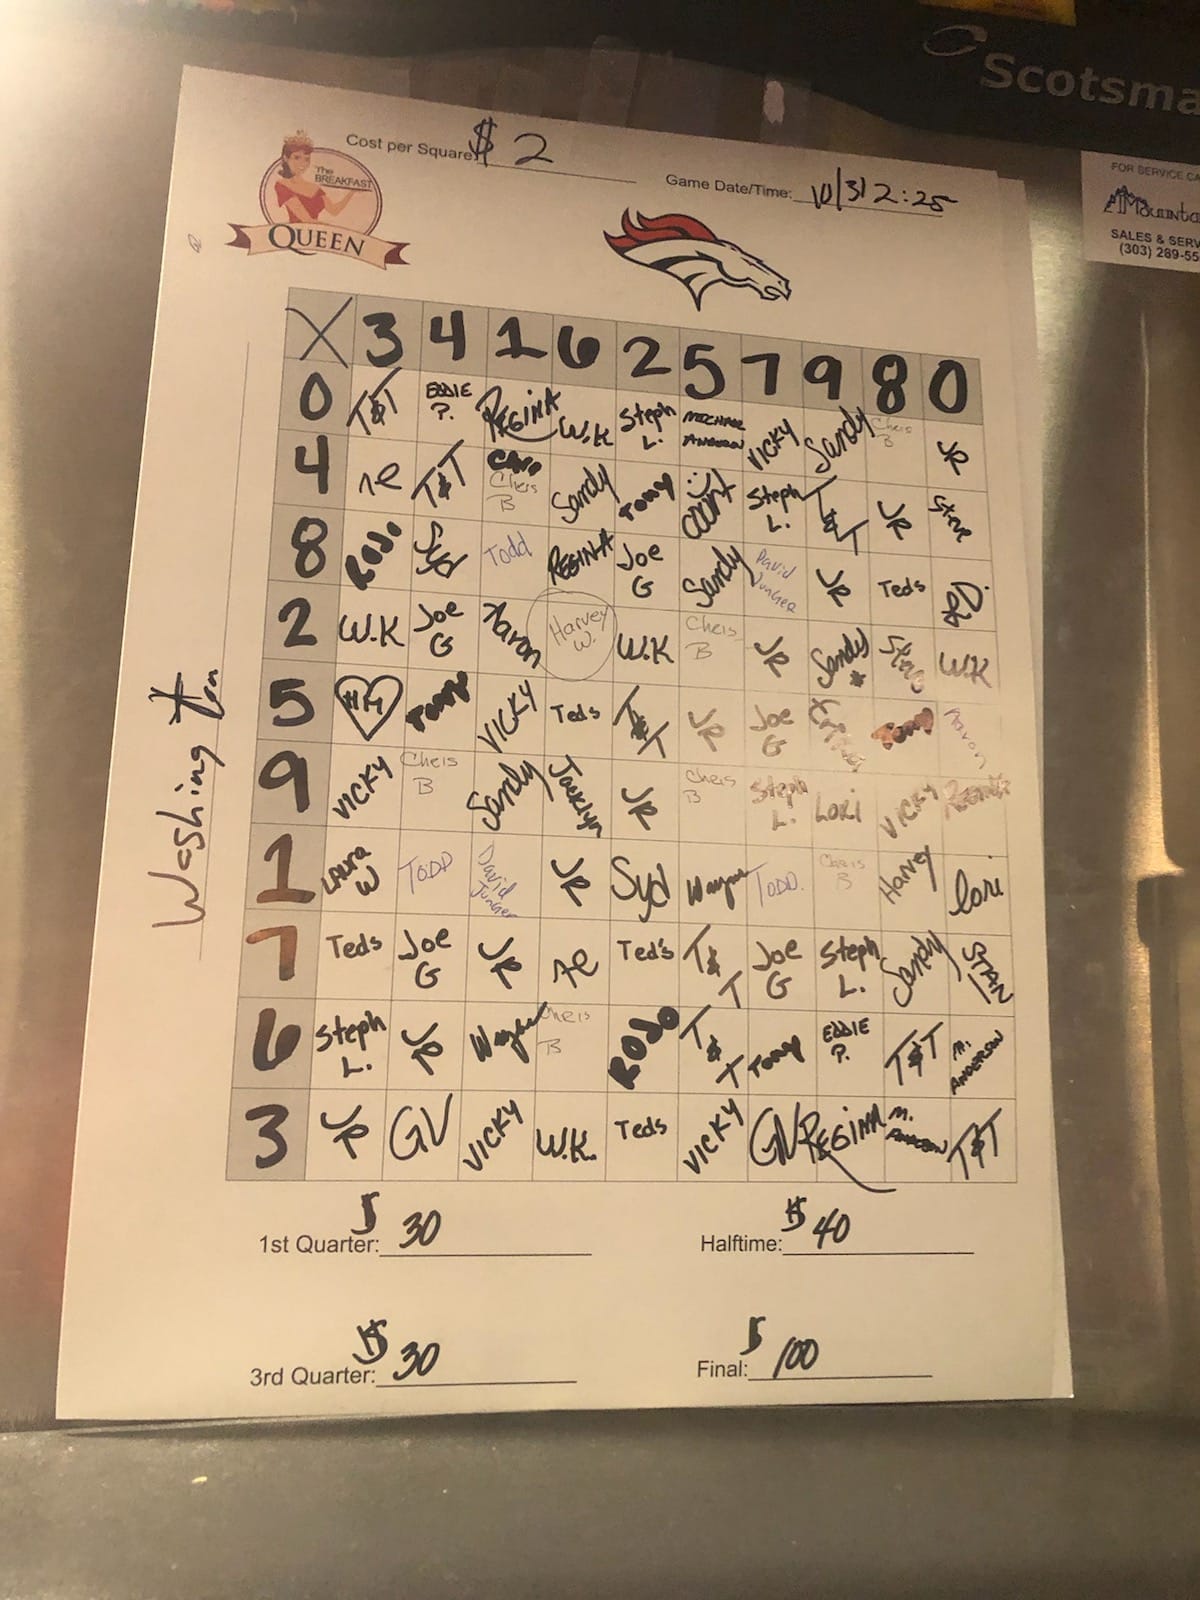 Scotsma
FOR SERVICE CA
Mounta
SALES & SERV
(303) 289-55
Cost per Square: $ 2
Game Date/Time: 10/31 2:25
The
BREAKFAST
QUEEN
X 3 4 1 6 2 5 7 9 8 0
0 T&T EDDIE P. REGINA W.K Steph L. MICHAEL ANDERSON VICKY Sandy Chris B JR
4 T&T Chris B Sandy Tony Steph L. T&T JR Steve
8 RODO Syd Todd REGINA Joe G Sandy David Junger JR Teds
2 W.K Joe G Aaron Harvey W. W.K Chris B JR Sandy * W.K
5 Tony VICKY Teds T&T JR Joe G Tony
9 VICKY Chris B Sandy Jacklyn JR Chris B Steph L. Lori VICKY Regina
1 LAURA W TODD David Junger JR Syd Wayne TODD. Chris B Harvey lori
7 Teds Joe G JR Ted's T&T Joe G Steph L. Sandy STAN
6 Steph L. JR Wayne Chris B RODO T&T Tony EDDIE P. T&T M. ANDERSON
3 JR GV VICKY W.K. Teds VICKY GV REGINA M. ANDERSON T&T
Washing
1st Quarter: $ 30
Halftime: $ 40
3rd Quarter: $ 30
Final: $ 100